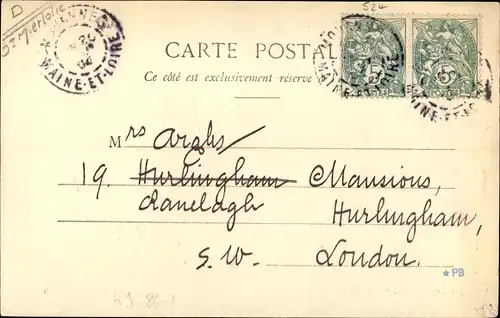 D
524
MAINE-ET-LOIRE
CARTE POSTALE
MAINE-ET-LOIRE
Ce côté est exclusivement réservé
Mrs
19. ~~Hurlingham~~ Mansions,
Ranelagh Hurlingham,
S.W. London.
PB